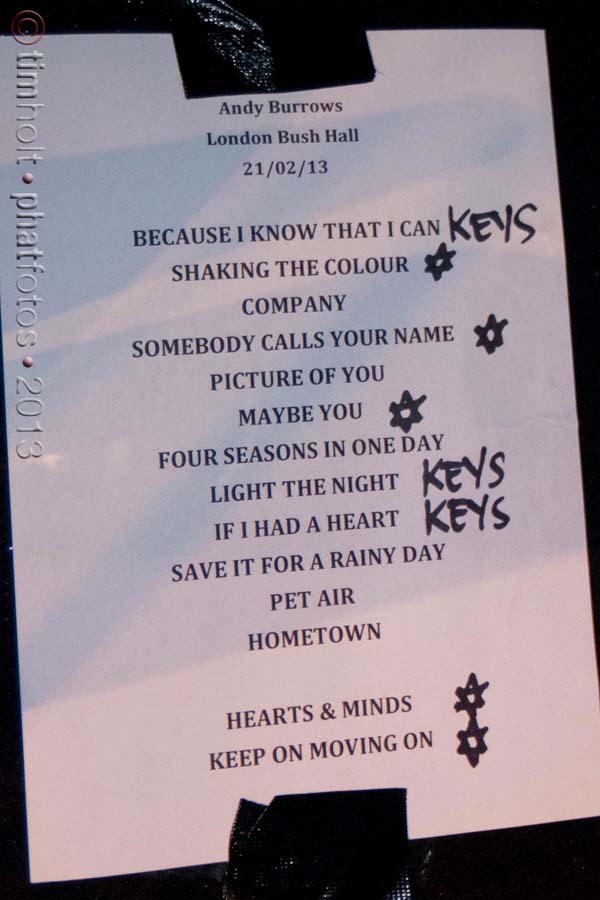 Andy Burrows
London Bush Hall
21/02/13
BECAUSE I KNOW THAT I CAN KEYS
SHAKING THE COLOUR
COMPANY
SOMEBODY CALLS YOUR NAME
PICTURE OF YOU
MAYBE YOU
FOUR SEASONS IN ONE DAY
LIGHT THE NIGHT KEYS
IF I HAD A HEART KEYS
SAVE IT FOR A RAINY DAY
PET AIR
HOMETOWN
HEARTS & MINDS
KEEP ON MOVING ON
© timholt • phatfotos • 2013